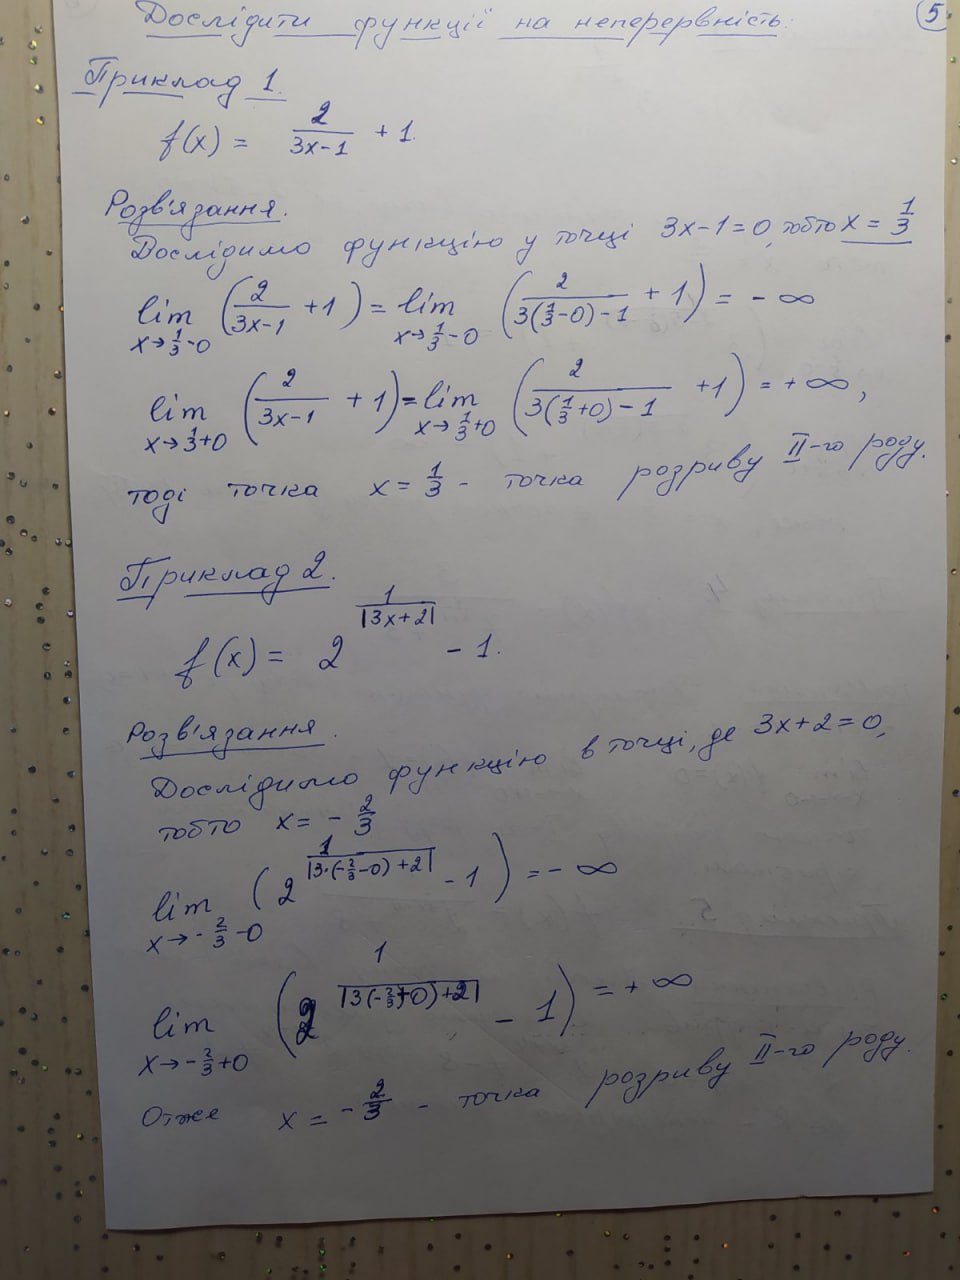 Дослідити функції на неперервність:
5
Приклад 1.
f(x) = 2/(3x-1) + 1.
Розв'язання.
Дослідимо функцію у точці 3x-1=0, тобто x = 1/3
lim x→1/3-0 (2/(3x-1) + 1) = lim x→1/3-0 (2/(3(1/3-0)-1) + 1) = - ∞
lim x→1/3+0 (2/(3x-1) + 1) = lim x→1/3+0 (2/(3(1/3+0)-1) + 1) = + ∞,
тоді точка x = 1/3 - точка розриву II-го роду.
Приклад 2.
f(x) = 2^(1/|3x+2|) - 1.
Розв'язання.
Дослідимо функцію в точці, де 3x+2=0,
тобто x = - 2/3
lim x→-2/3-0 (2^(1/|3·(-2/3-0)+2|) - 1) = - ∞
lim x→-2/3+0 (2^(1/|3(-2/3+0)+2|) - 1) = + ∞
Отже x = - 2/3 - точка розриву II-го роду.